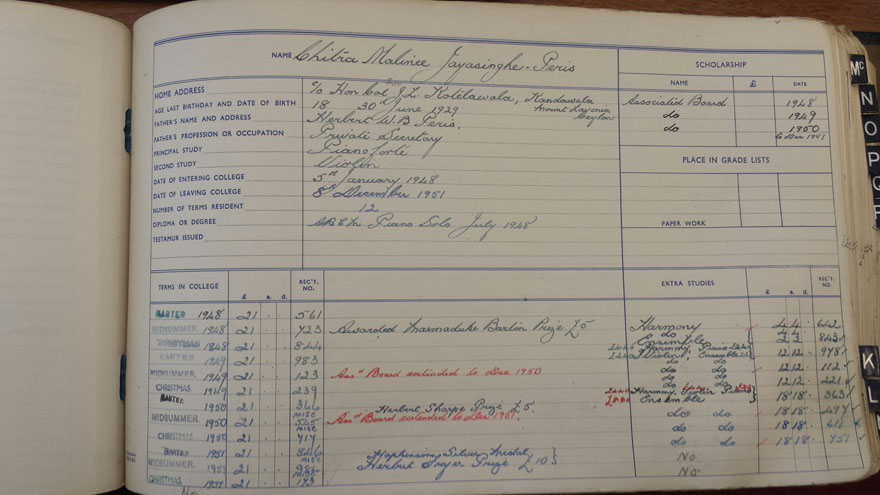 NAME Chitra Malinee Jayasinghe-Peris
HOME ADDRESS c/o Hon. Col. J.L. Kotelawala, Kandawala
Mount Lavinia
Ceylon
AGE LAST BIRTHDAY AND DATE OF BIRTH 18 30th June 1929
FATHER'S NAME AND ADDRESS Herbert W.B. Peris,
FATHER'S PROFESSION OR OCCUPATION Private Secretary
PRINCIPAL STUDY Pianoforte
SECOND STUDY Violin
DATE OF ENTERING COLLEGE 5th January 1948
DATE OF LEAVING COLLEGE 8th December 1951
NUMBER OF TERMS RESIDENT 12
DIPLOMA OR DEGREE Piano Solo July 1948
TESTAMUR ISSUED
SCHOLARSHIP
NAME £ DATE
Associated Board 1948
do 1949
do 1950
to Dec 1951
PLACE IN GRADE LISTS
PAPER WORK
TERMS IN COLLEGE £ s. d. REC'T. NO. EXTRA STUDIES £ s. d. REC'T. NO.
EASTER 1948 21 561
MIDSUMMER 1948 21 723 Awarded Marmaduke Barton Prize £5 Harmony 4 4 642
CHRISTMAS 1948 21 844 do
Ensemble 2 2 843
EASTER 1949 21 983 Harmony, Ensemble 12 12 978
MIDSUMMER 1949 21 123 Assd Board extended to Dec 1950 do do 12 12 112
CHRISTMAS 1949 21 239 do do 12 12 221
EASTER 1950 21 366 Herbert Sharpe Prize £5. Harmony, Violin Piano
Ensemble 18 18 363
MIDSUMMER 1950 21 MISC 545 Assd Board extended to Dec 1951. do do 18 18
CHRISTMAS 1950 21 MISC 717 do do 18 18
EASTER 1951 21 846 Hopkinson Silver Medal do do 18 18 751
MIDSUMMER 1951 21 MISC 986 Herbert Fryer Prize £10 No
CHRISTMAS 1951 21 MISC 173 No
Mc
N
O
P
K
L